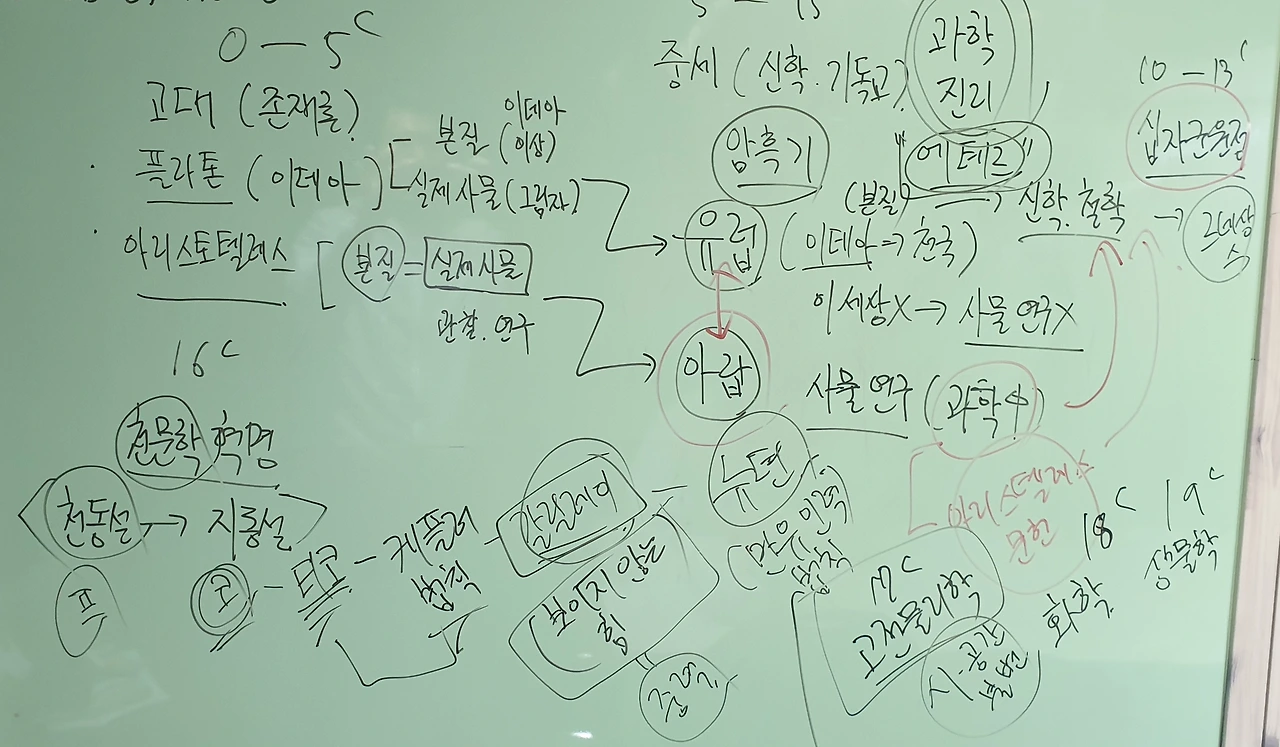 0 – 5C
고대 (존재론)
· 플라톤 (이데아)
본질 이데아 (이상)
실제사물 (그림자)
· 아리스토텔레스
본질 = 실제사물
관찰. 연구
중세 (신학. 기독교)
과학
진리
암흑기
"에테르"
(본질)
→ 신학. 철학
유럽 (이데아 => 천국)
이세상X → 사물 연구X
아랍
사물 연구 (과학中)
아리스텔레스
문헌
10 – 13C
십자군원정
→ 르네상스
16C
천문학 혁명
천동설 → 지동설
프
코 – 티코 – 케플러 법칙 – 갈릴레이 – 뉴턴
(보이지 않는 힘
중력
(만유인력 법칙
17C
고전물리학
시·공간
불변
18C
화학
19C
생물학